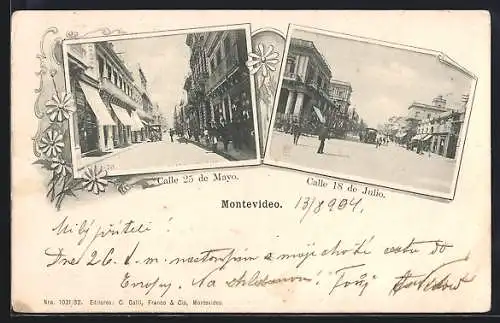 Calle 25 de Mayo.
Calle 18 de Julio.
Montevideo.
13/8 904.
Milý příteli!
Dne 26. t. m. nastoupím s mojí chotí cestu do
Evropy. Na shledanou! Tvůj
Nro. 1031/32. Editores: C. Galli, Franco & Cia, Montevideo.